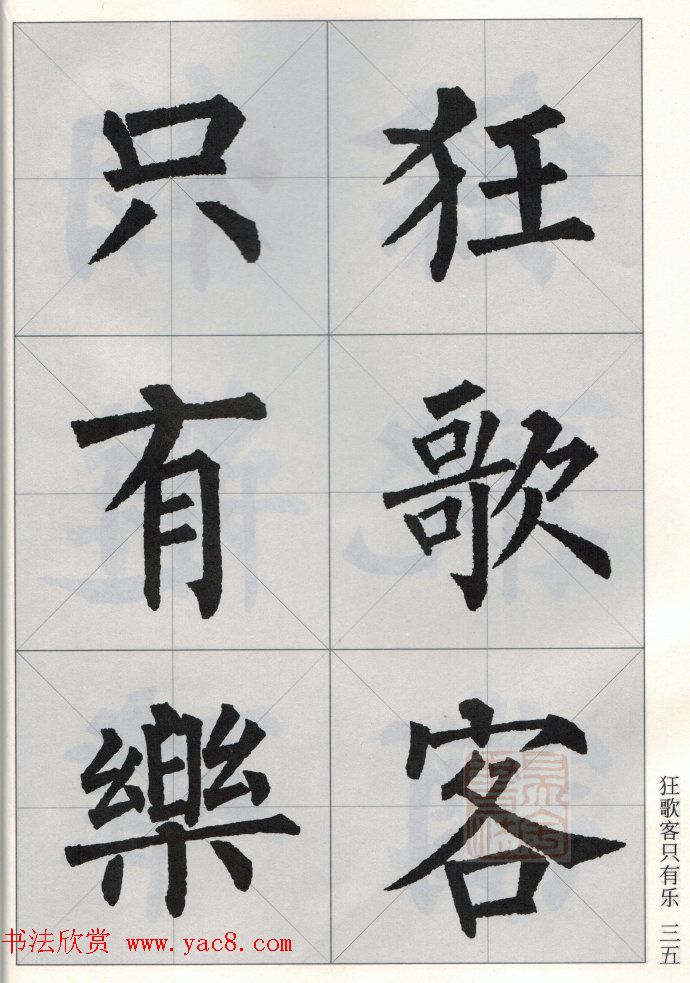 狂歌客
只有樂
狂歌客只有乐 三五
书法欣赏 www.yac8.com